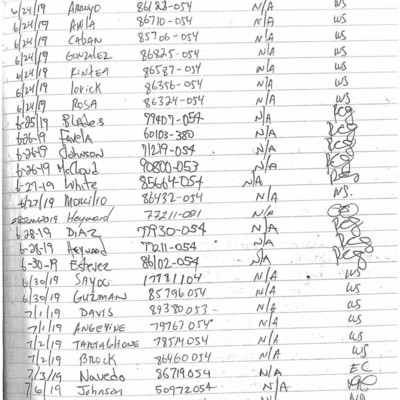 6/24/19 Araujo 86183-054 N/A WS
6/24/19 AVILA 86710-054 N/A WS
6/24/19 CABAN 85706-054 N/A WS
6/24/19 GONZALEZ 86825-054 N/A WS
6/24/19 86587-054 N/A WS
6/24/19 lorick 86356-054 N/A WS
6/24/19 ROSA 86324-054 N/A WS
6-25/19 BLADES 77407-054 N/A
6-26-19 Favela 60103-380 N/A
6-26-19 Johnson 71279-054 N/A
6-26-19 McCloud 90800-053 N/A
6-27-19 White 85664-054 N/A
6/27/19 86432-054 N/A WS.
Heyward 77211-081 N/A
6-28-19 DIAZ 77930-054 N/A
6-28-19 Heyward 77211-054 N/A
6-30-19 Estevez 86102-054 N/A
6/30/19 SAYOC 17781104 N/A WS
6/30/19 GUZMAN 85796054 N/A WS
7/1/19 DAVIS 89380053 N/A WS
7/1/19 ANGEVINE 79767054 N/A WS
7/2/19 TARTAGLIONE 78514054 N/A WS
7/2/19 BROCK 86460054 N/A WS
7/3/19 Navedo 86719054 N/A EC
7/6/19 Johnson 50972054 N/A